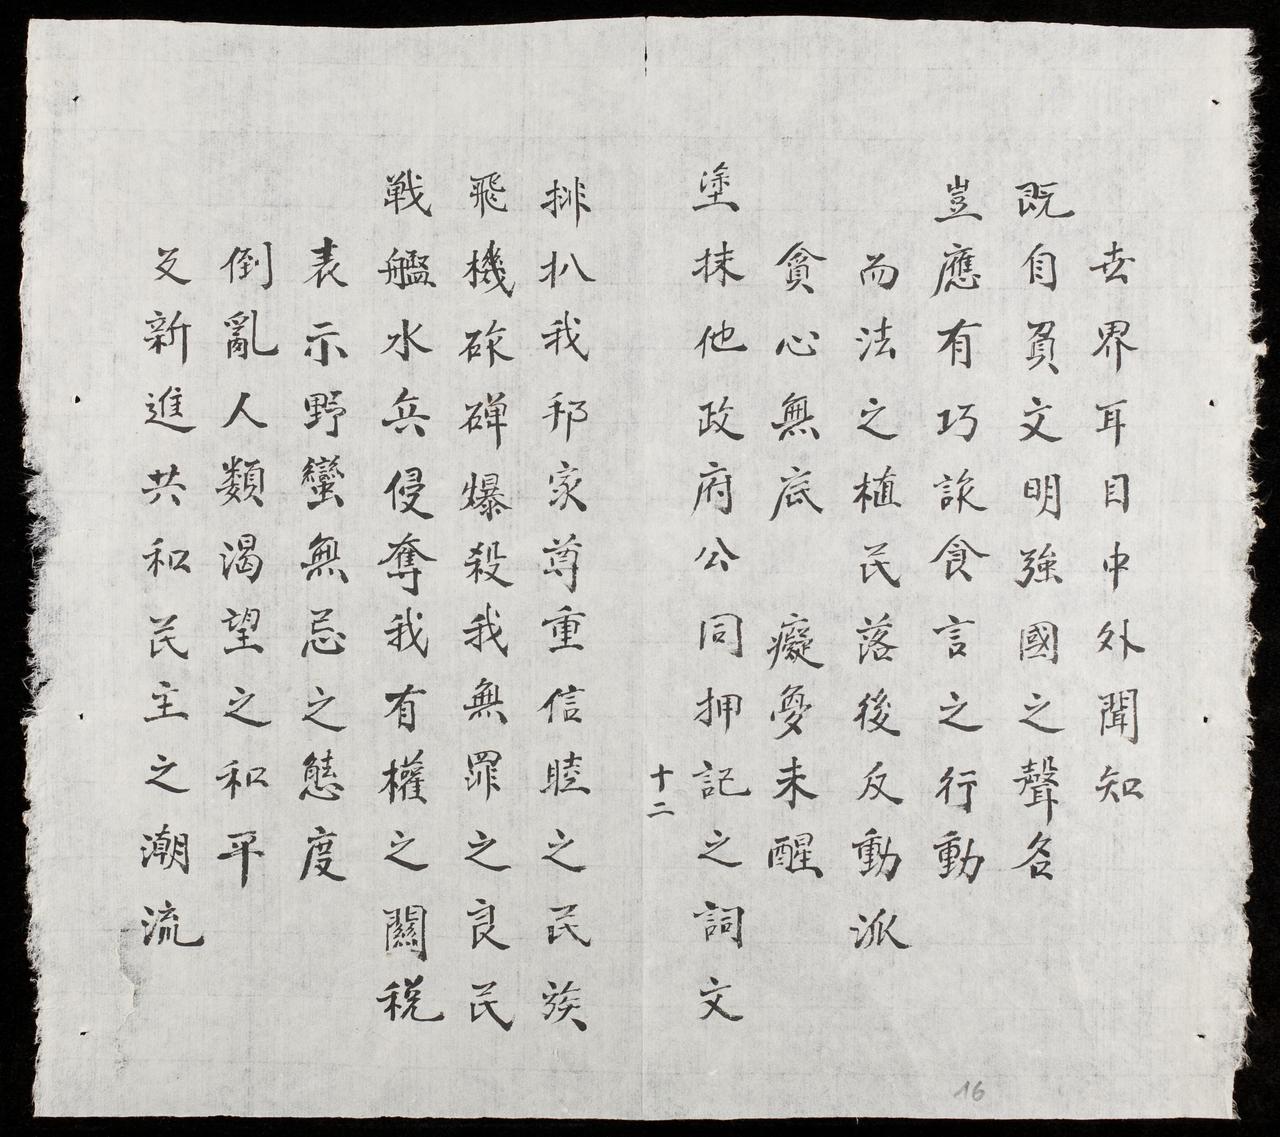 世界耳目中外聞知
既自負文明強國之聲名
豈應有巧詐食言之行動
而法之植民落後反動派
貪心無底　癡憂未醒
塗抹他政府公同押記之詞文
十二
排扒我邦家尊重信睦之民族
飛機砟磾爆殺我無罪之良民
戦艦水兵侵奪我有權之關税
表示野蠻無忌之態度
倒亂人類渴望之和平
反新進共和民主之潮流
16